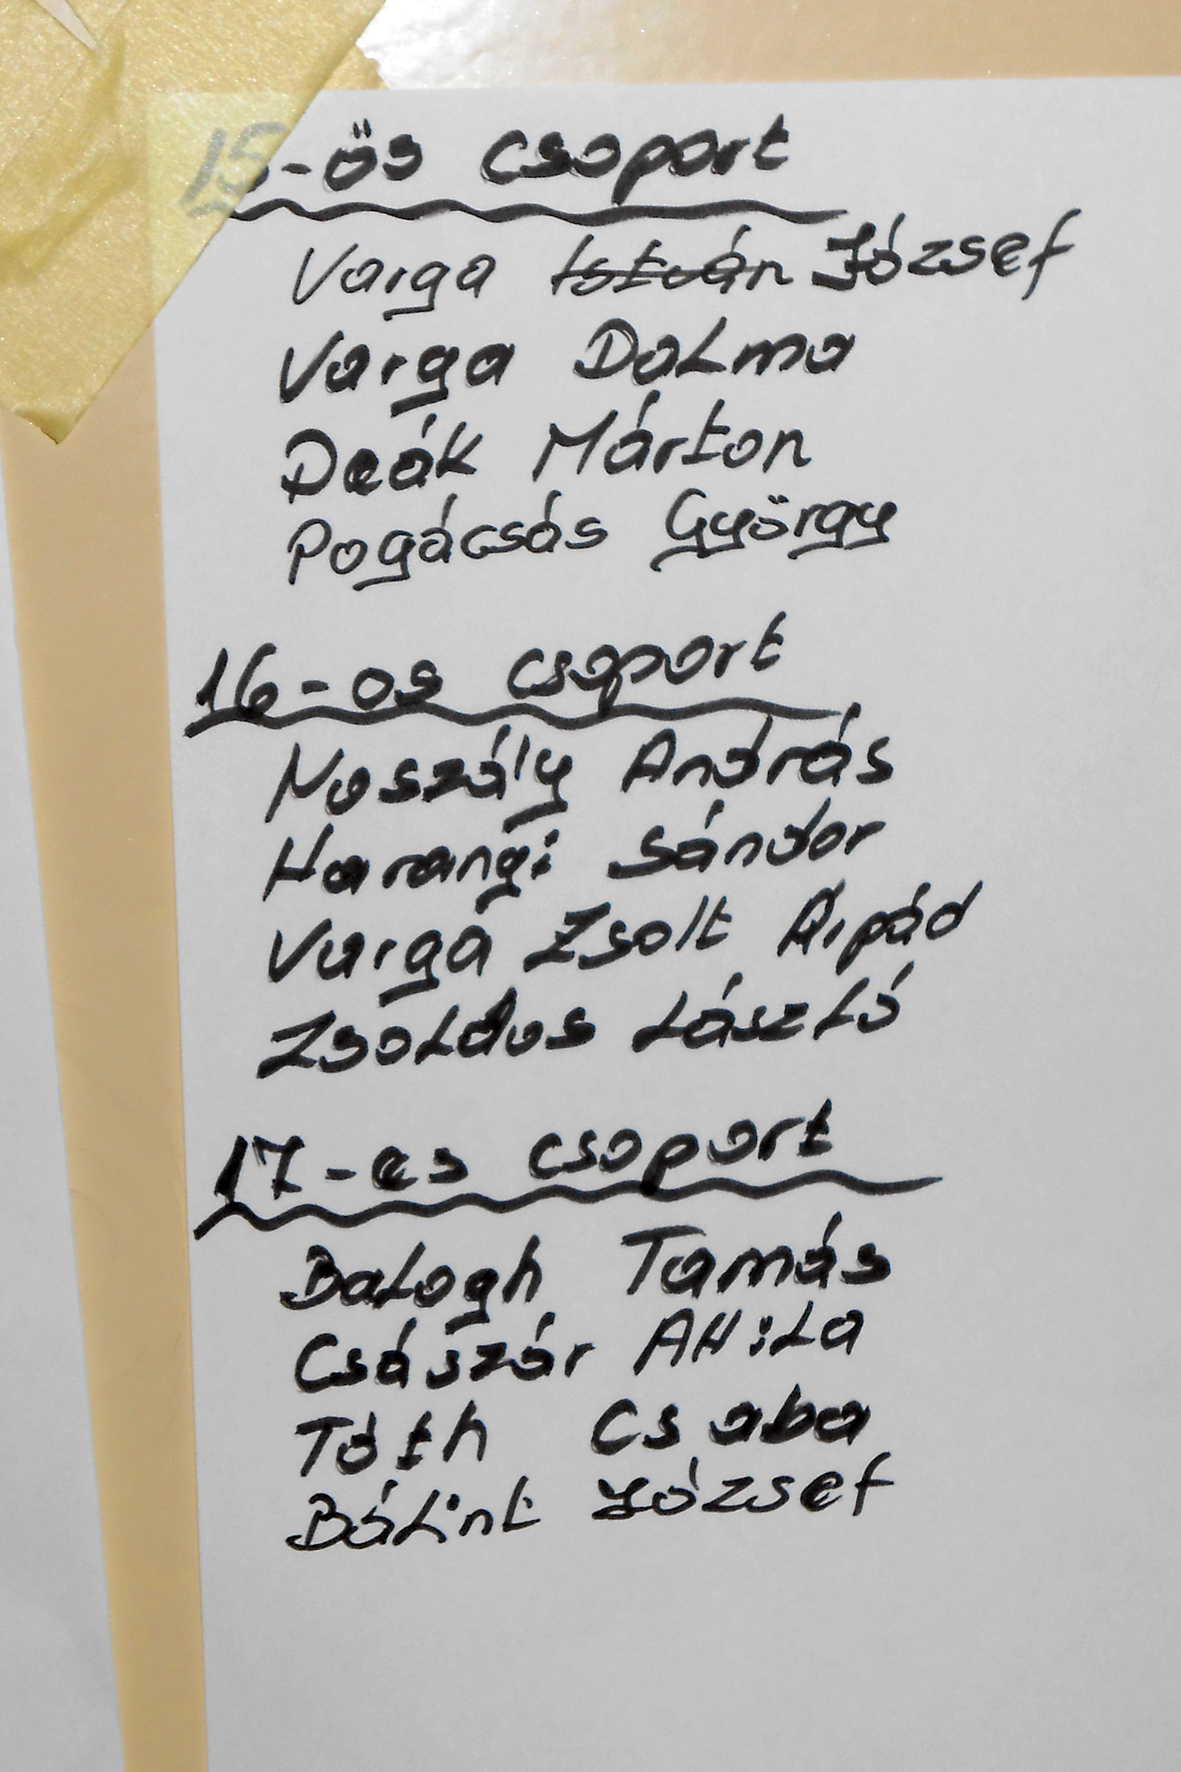 15-ös csoport
Varga István József
Varga Dalma
Deák Márton
Pogácsás György
16-os csoport
Noszály András
Harangi Sándor
Varga Zsolt Árpád
Zsoldos László
17-es csoport
Balogh Tamás
Császár Attila
Tóth Csaba
Bálint József